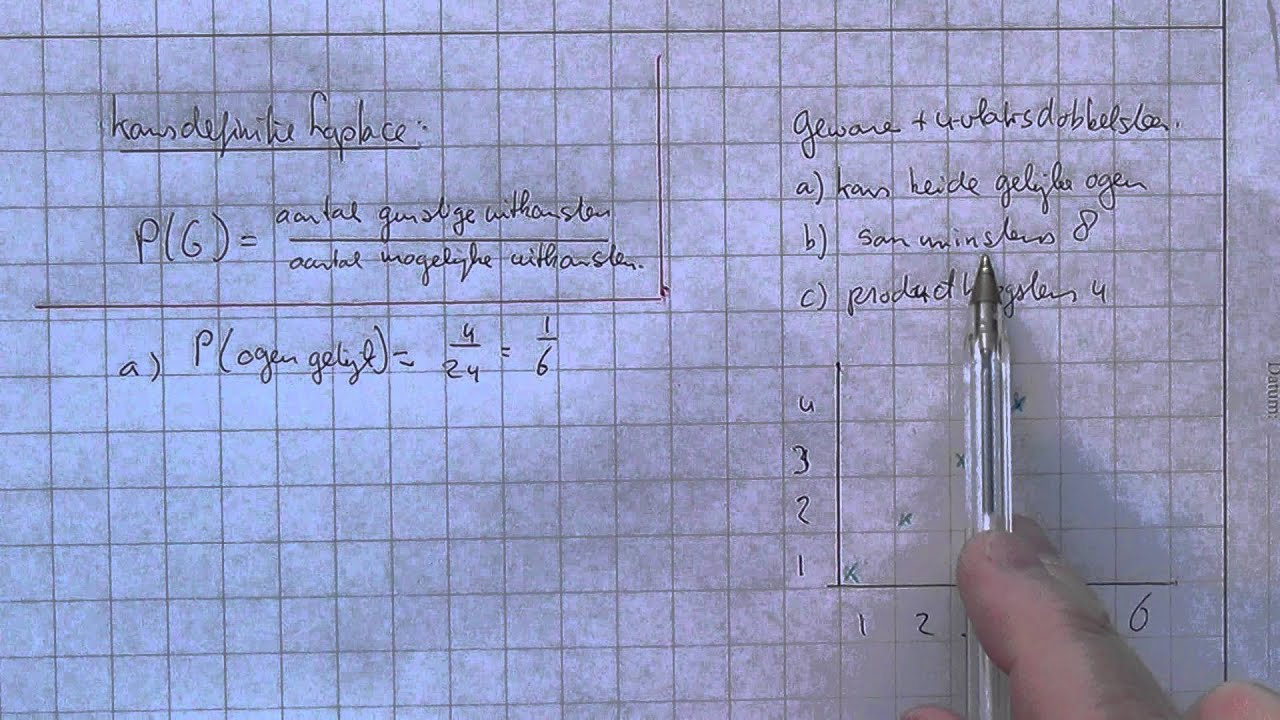 kansdefinitie Laplace:
P(G) = aantal gunstige uitkomsten
aantal mogelijke uitkomsten.
a) P(ogen gelijk) = 4/24 = 1/6
gewone + 4-vlaksdobbelsteen.
a) kans beide gelijke ogen
b) som minstens 8
c) product hoogstens 4
4
3
2
1
1 2 6
Datum: